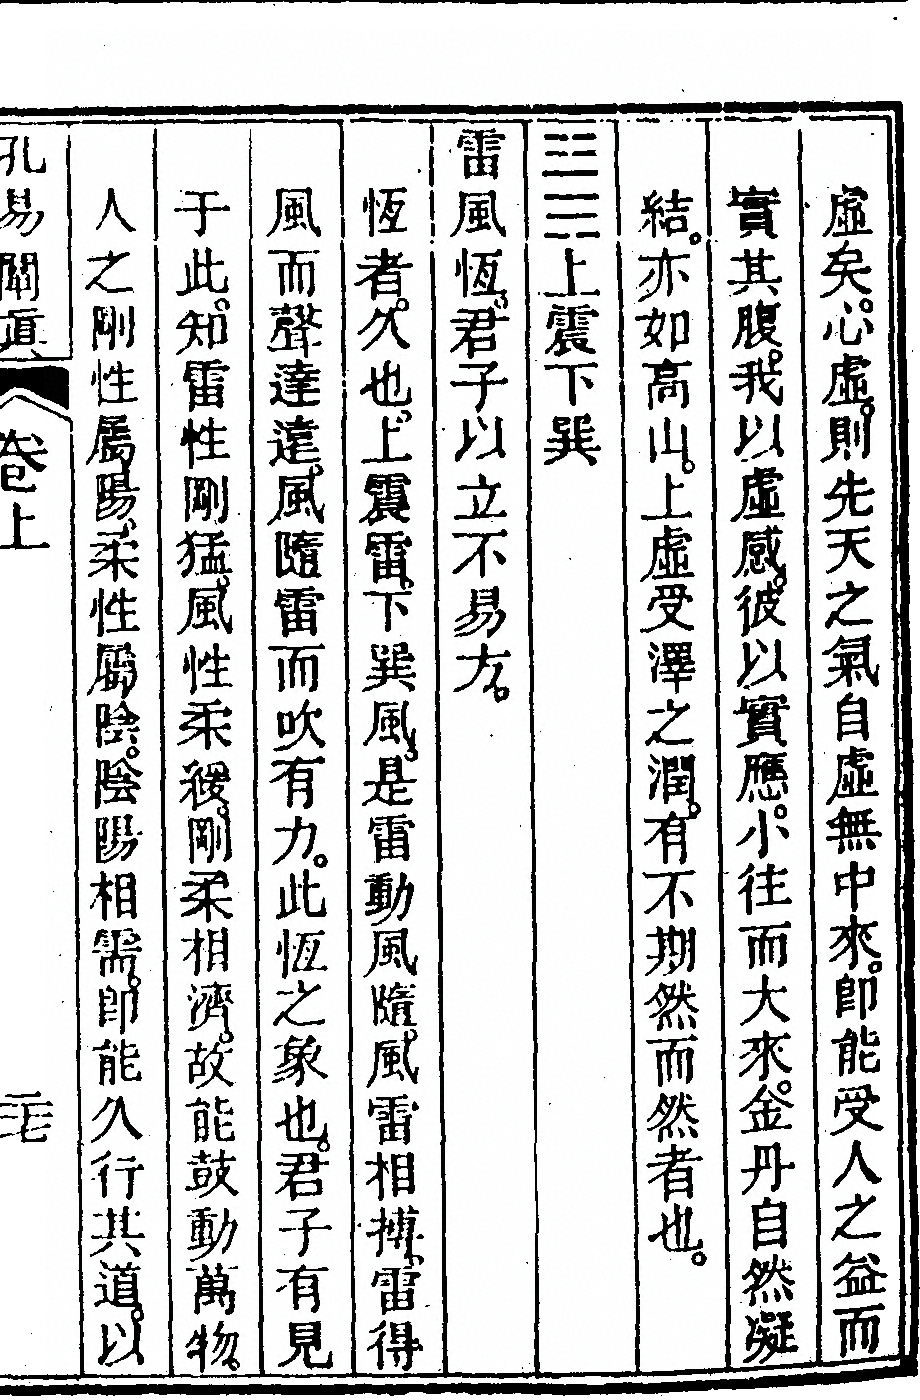 虛矣。心虛。則先天之氣自虛無中來。即能受人之益而
實其腹。我以虛感。彼以實應。小往而大來。金丹自然凝
結。亦如高山。上虛受澤之潤。有不期然而然者也。
䷟上震下巽
雷風恆。君子以立不易方。
恆者。久也。上震雷。下巽風。是雷動風隨。風雷相搏。雷得
風而聲達遠。風隨雷而吹有力。此恆之象也。君子有見
于此。知雷性剛猛。風性柔緩。剛柔相濟。故能鼓動萬物。
人之剛性屬陽、柔性屬陰。陰陽相需。即能久行其道。以
孔易闡真
卷上
二七